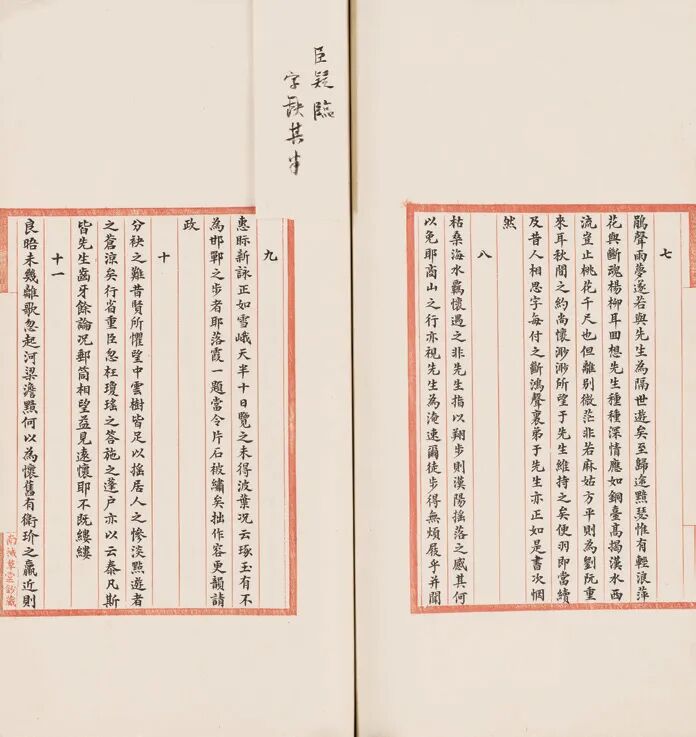 七
鵑聲雨夢遂若與先生為隔世遊矣至歸途黯瑟惟有輕浪萍
花與斷魂楊柳耳回想先生種種深情應如銅臺高揭漢水西
流豈止桃花千尺也但離別微茫非若麻姑方平則為劉阮重
來耳秋間之約尚懷渺渺所望于先生維持之矣便羽即當續
及昔人相思字每付之斷鴻聲裏弟于先生亦正如是書次惘
然
八
枯桑海水羈懷遇之非先生指以翔步則漢陽搖落之感其何
以免耶商山之行亦視先生為淹速爾徒步得無煩屐乎并聞
臣疑臨
字缺其半
九
惠眎新詠正如雪峨天半十日覽之未得波葉況云琢玉有不
為邯鄲之步者耶落霞一題當令片石被繡矣拙作容更韻請
政
十
分袂之難昔賢所懼望中雲樹皆足以搖居人之慘淡黯遊者
之蒼涼矣行省重臣忽枉瓊瑤之答施之蓬戶亦以云泰凡斯
皆先生齒牙餘論況郵筒相望益見遠懷耶不既縷縷
十一
良晤未幾離歌忽起河梁澹黯何以為懷舊有衛玠之羸近則